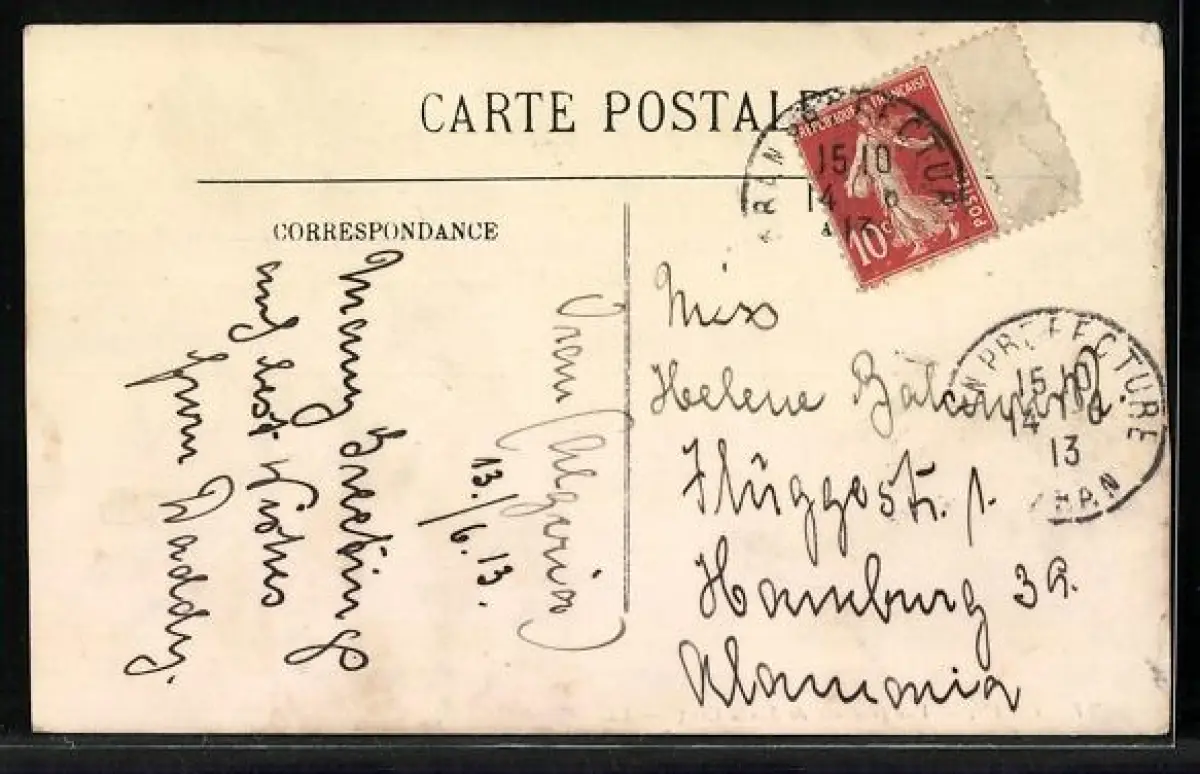 CARTE POSTALE
CORRESPONDANCE
RÉPUBLIQUE FRANÇAISE
POSTES
10c
ORAN PREFECTURE
15 10
14 6
13
ORAN PREFECTURE
15 10
14
13
ORAN
Oran (Algeria)
13./6.13.
Many Greetings
and best Wishes
from Waddy.
Miss
Helene
Flüggestr. 1.
Hamburg 39.
Alamania